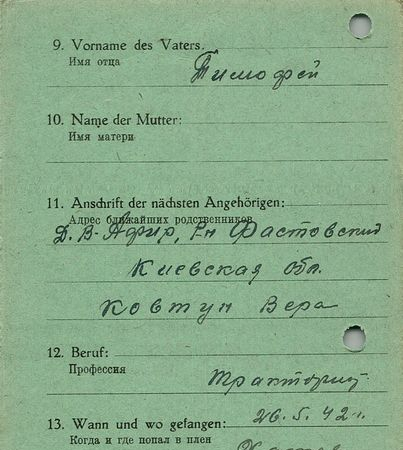 9. Vorname des Vaters.
Имя отца
Тимофей
10. Name der Mutter:
Имя матери
11. Anschrift der nächsten Angehörigen:
Адрес ближайших родственников
Д. В- Р-н Фастовский
Киевская обл.
Ковтун Вера
12. Beruf:
Профессия
тракторист
13. Wann und wo gefangen: 26.5.42 г.
Когда и где попал в плен